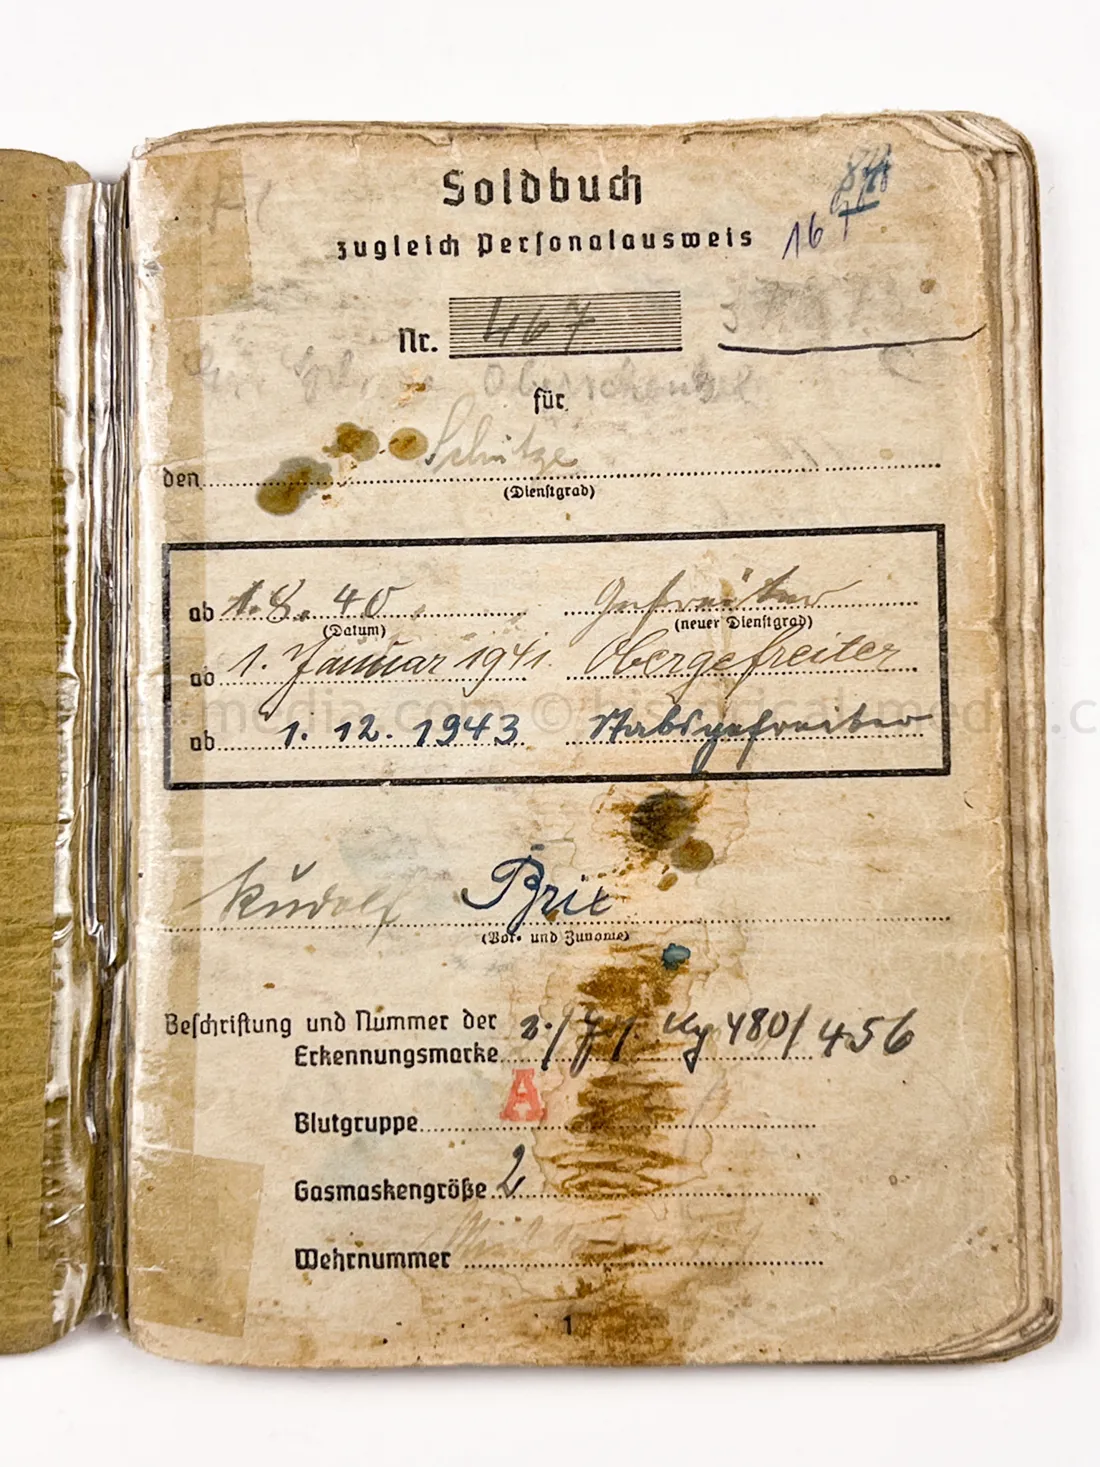 Soldbuch
zugleich Personalausweis
16
Nr. 467
Oberschenkel
für
den Schütze
(Dienstgrad)
ab 1.8.40. Gefreiter
(Datum) (neuer Dienstgrad)
ab 1. Januar 1941. Obergefreiter
ab 1. 12. 1943 Stabsgefreiter
Rudolf Brix
(Vor- und Zuname)
Beschriftung und Nummer der
Erkennungsmarke 480/456
Blutgruppe A
Gasmaskengröße 2
Wehrnummer
1
media.com © historical-media.c